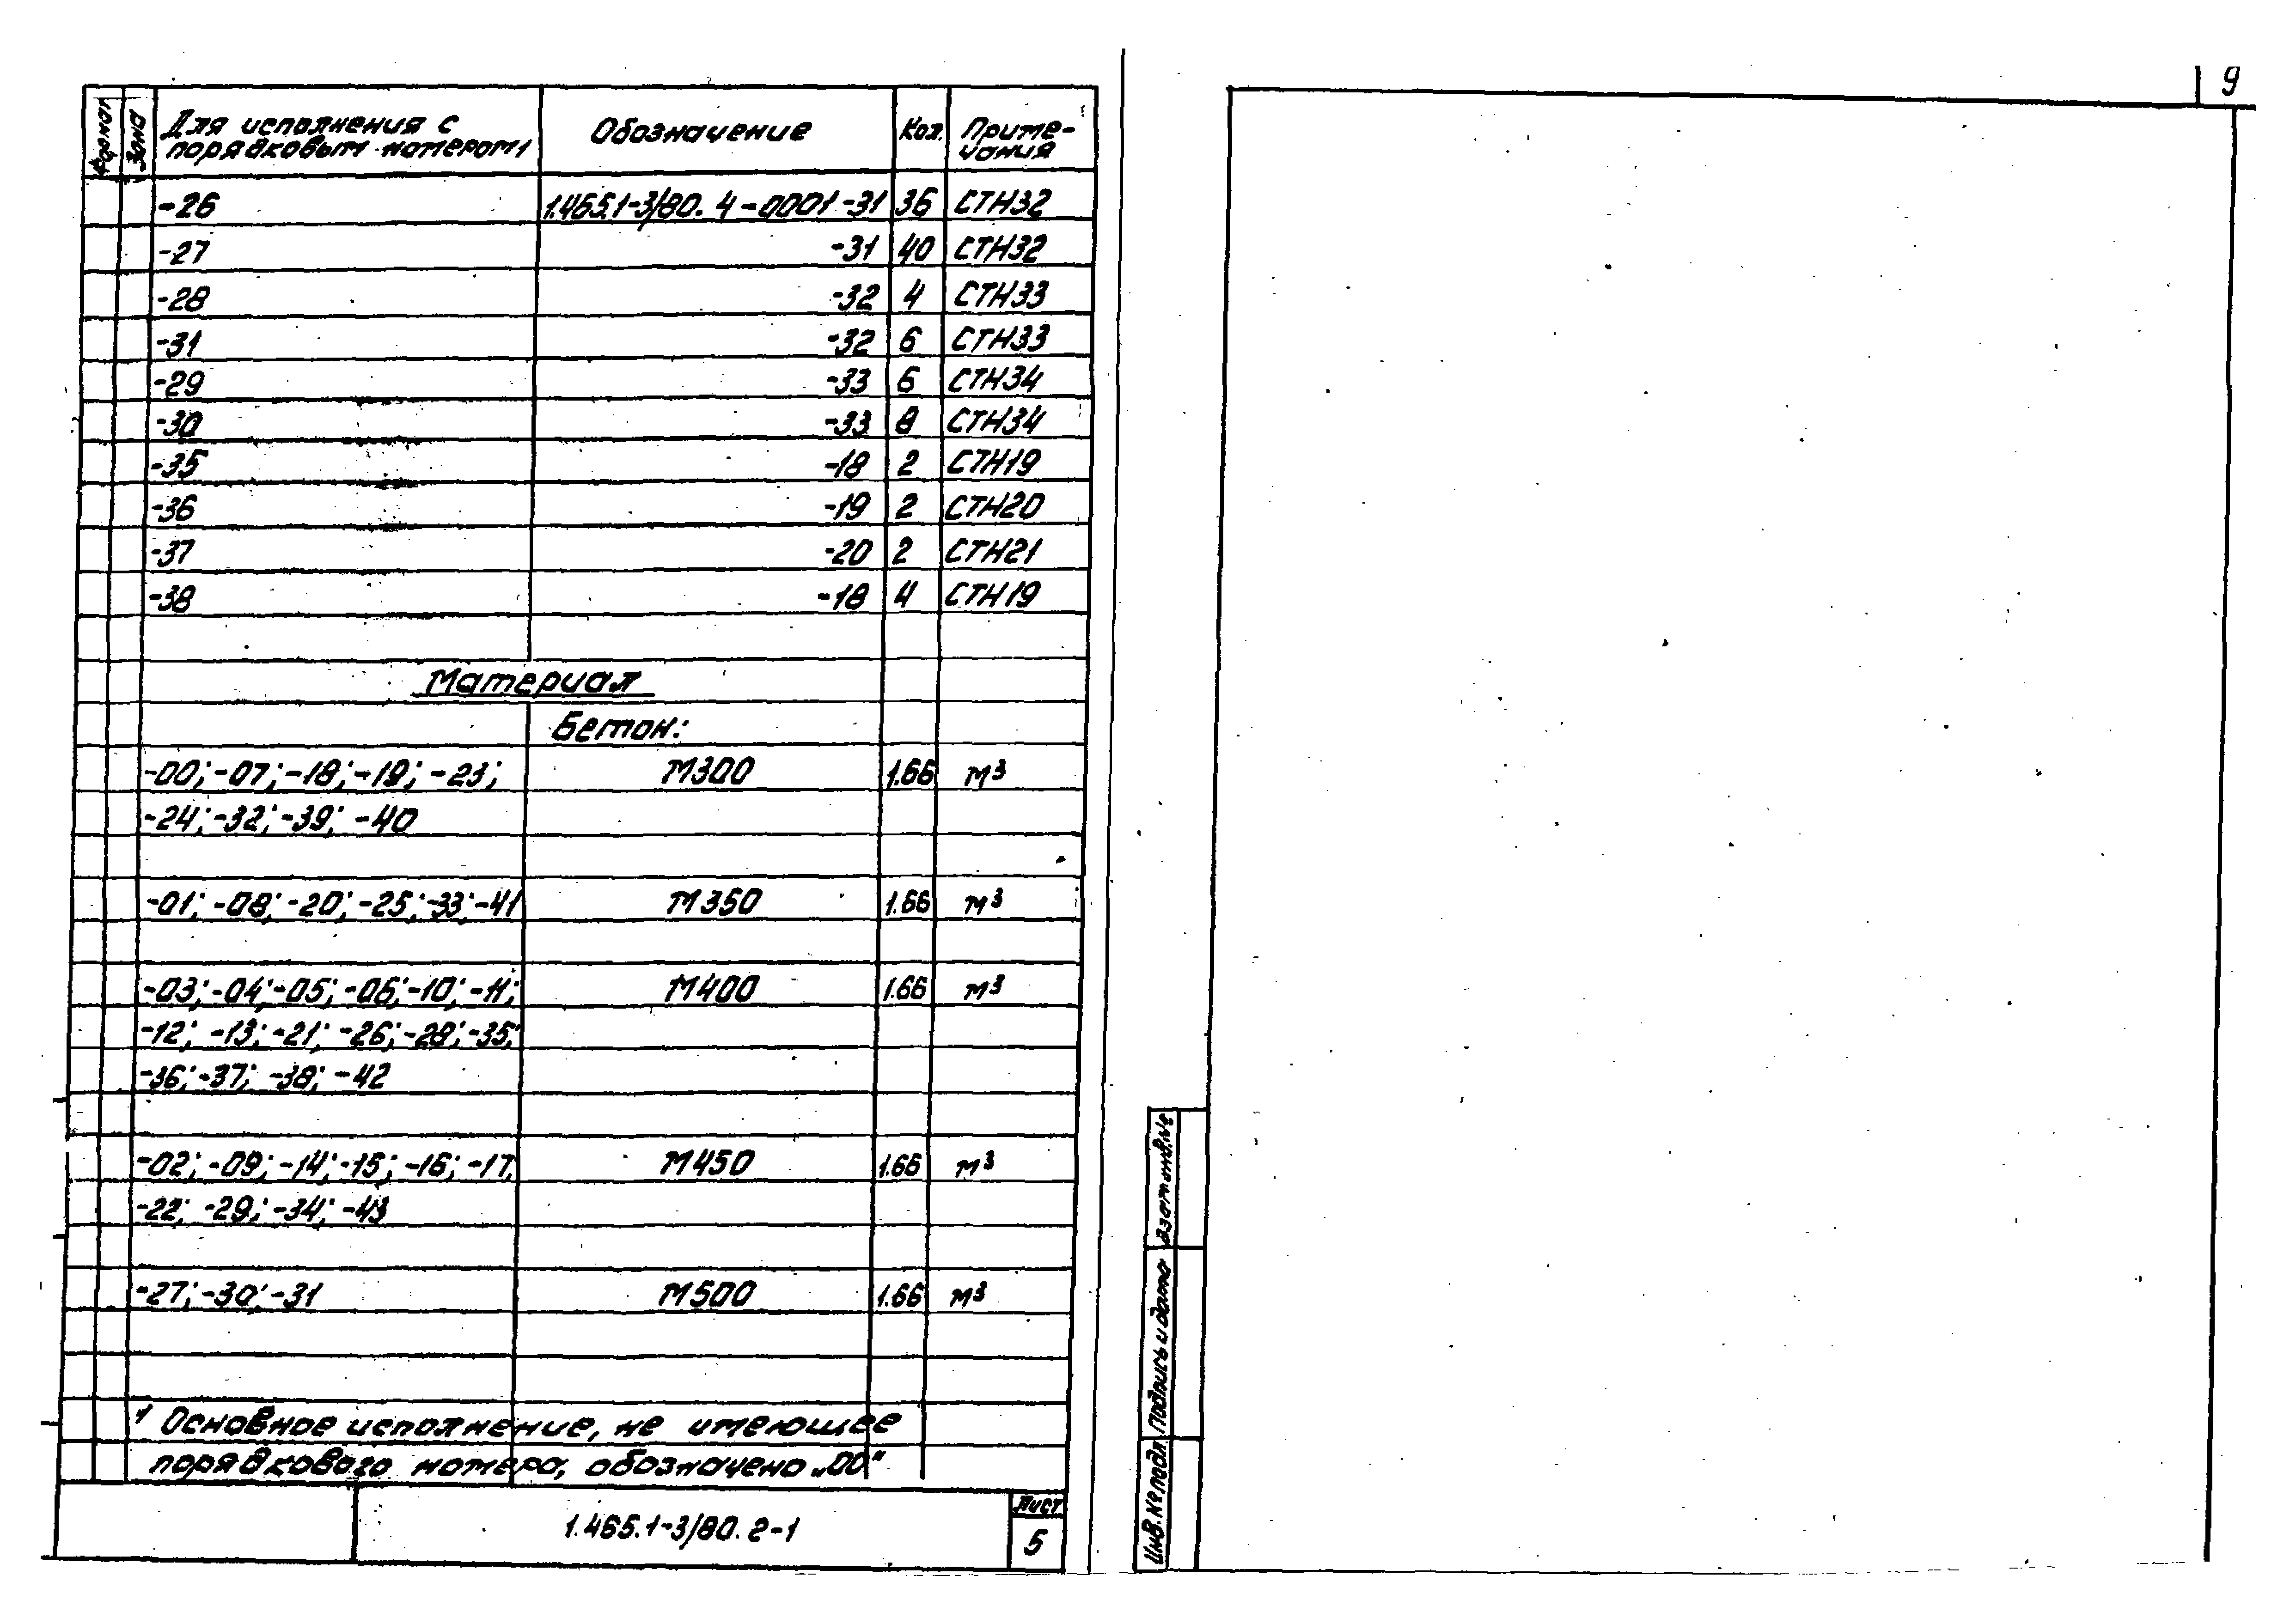 9
Формат Зона Для исполнения с порядковым номером1 Обозначение Кол. Приме-чания
-26 1.465.1-3/80. 4-0001-31 36 СТН32
-27 -31 40 СТН32
-28 -32 4 СТН33
-31 -32 6 СТН33
-29 -33 6 СТН34
-30 -33 8 СТН34
-35 -18 2 СТН19
-36 -19 2 СТН20
-37 -20 2 СТН21
-38 -18 4 СТН19
Материал
Бетон:
-00; -07; -18; -19; -23; М300 1.66 м³
-24; -32; -39; -40
-01; -08; -20; -25; -33; -41 М350 1.66 м³
-03; -04; -05; -06; -10; -11; М400 1.66 м³
-12; -13; -21; -26; -28; -35;
-36; -37; -38; -42
-02; -09; -14; -15; -16; -17; М450 1.66 м³
-22; -29; -34; -43
-27; -30; -31 М500 1.66 м³
1 Основное исполнение, не имеющее
порядкового номера, обозначено „00"
1.465.1-3/80. 2-1
Лист
5
Взам.инв.№
Подпись и дата
Инв.№подл.